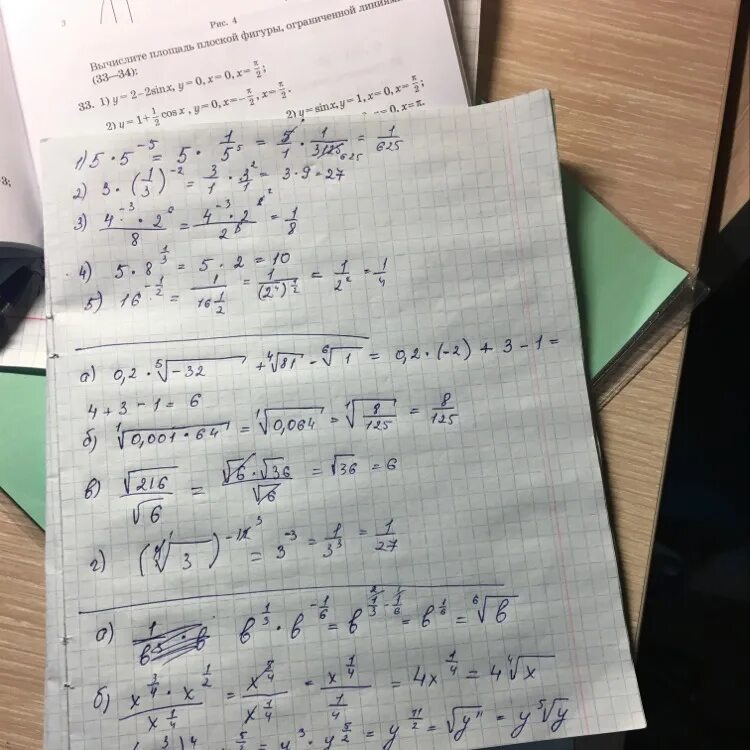 3
Рис. 4
Вычислите площадь плоской фигуры, ограниченной линиями
(33—34):
33. 1) y = 2 - 2sinx, y = 0, x = 0, x = π/2;
2) y = 1 + 1/2 cosx, y = 0, x = -π/2, x = π/2;
2) y = sinx, y = 1, x = 0, x = π/2;
= 0, x = π.
3;
1) 5 · 5^-5 = 5 · 1/5^5 = 5/1 · 1/3125 625 = 1/625
2) 3 · (1/3)^-2 = 3/1 · 3^2/1 = 3 · 9 = 27
3) 4^-3 · 2^6 / 8 = 4^-3 · 2 / 2 = 1/8
4) 5 · 8^1/3 = 5 · 2 = 10
5) 16^-1/2 = 1/16^1/2 = 1/(2^4)^1/2 = 1/2^2 = 1/4
а) 0,2 · ⁵√-32 + ⁴√81 - ⁶√1 = 0,2 · (-2) + 3 - 1 =
4 + 3 - 1 = 6
б) ¹√0,001 · 64 = ¹√0,064 = ¹√8/125 = 8/125
в) √216/√6 = √6 · √36/√6 = √36 = 6
г) (√3)^-12 3 = 3^-3 = 1/3^3 = 1/27
а) b^1/3 · b^-1/6 = b^2 1/3 - 1/6 = b^1/6 = ⁶√b
б) x^3/4 · x^1/2 / x^1/4 = x / x^1/4 = x^1/4 / 1/4 = 4x^1/4 = 4 ⁴√x
= y^3 · y^5/2 = y^11/2 = √y^11 = y ⁵√y